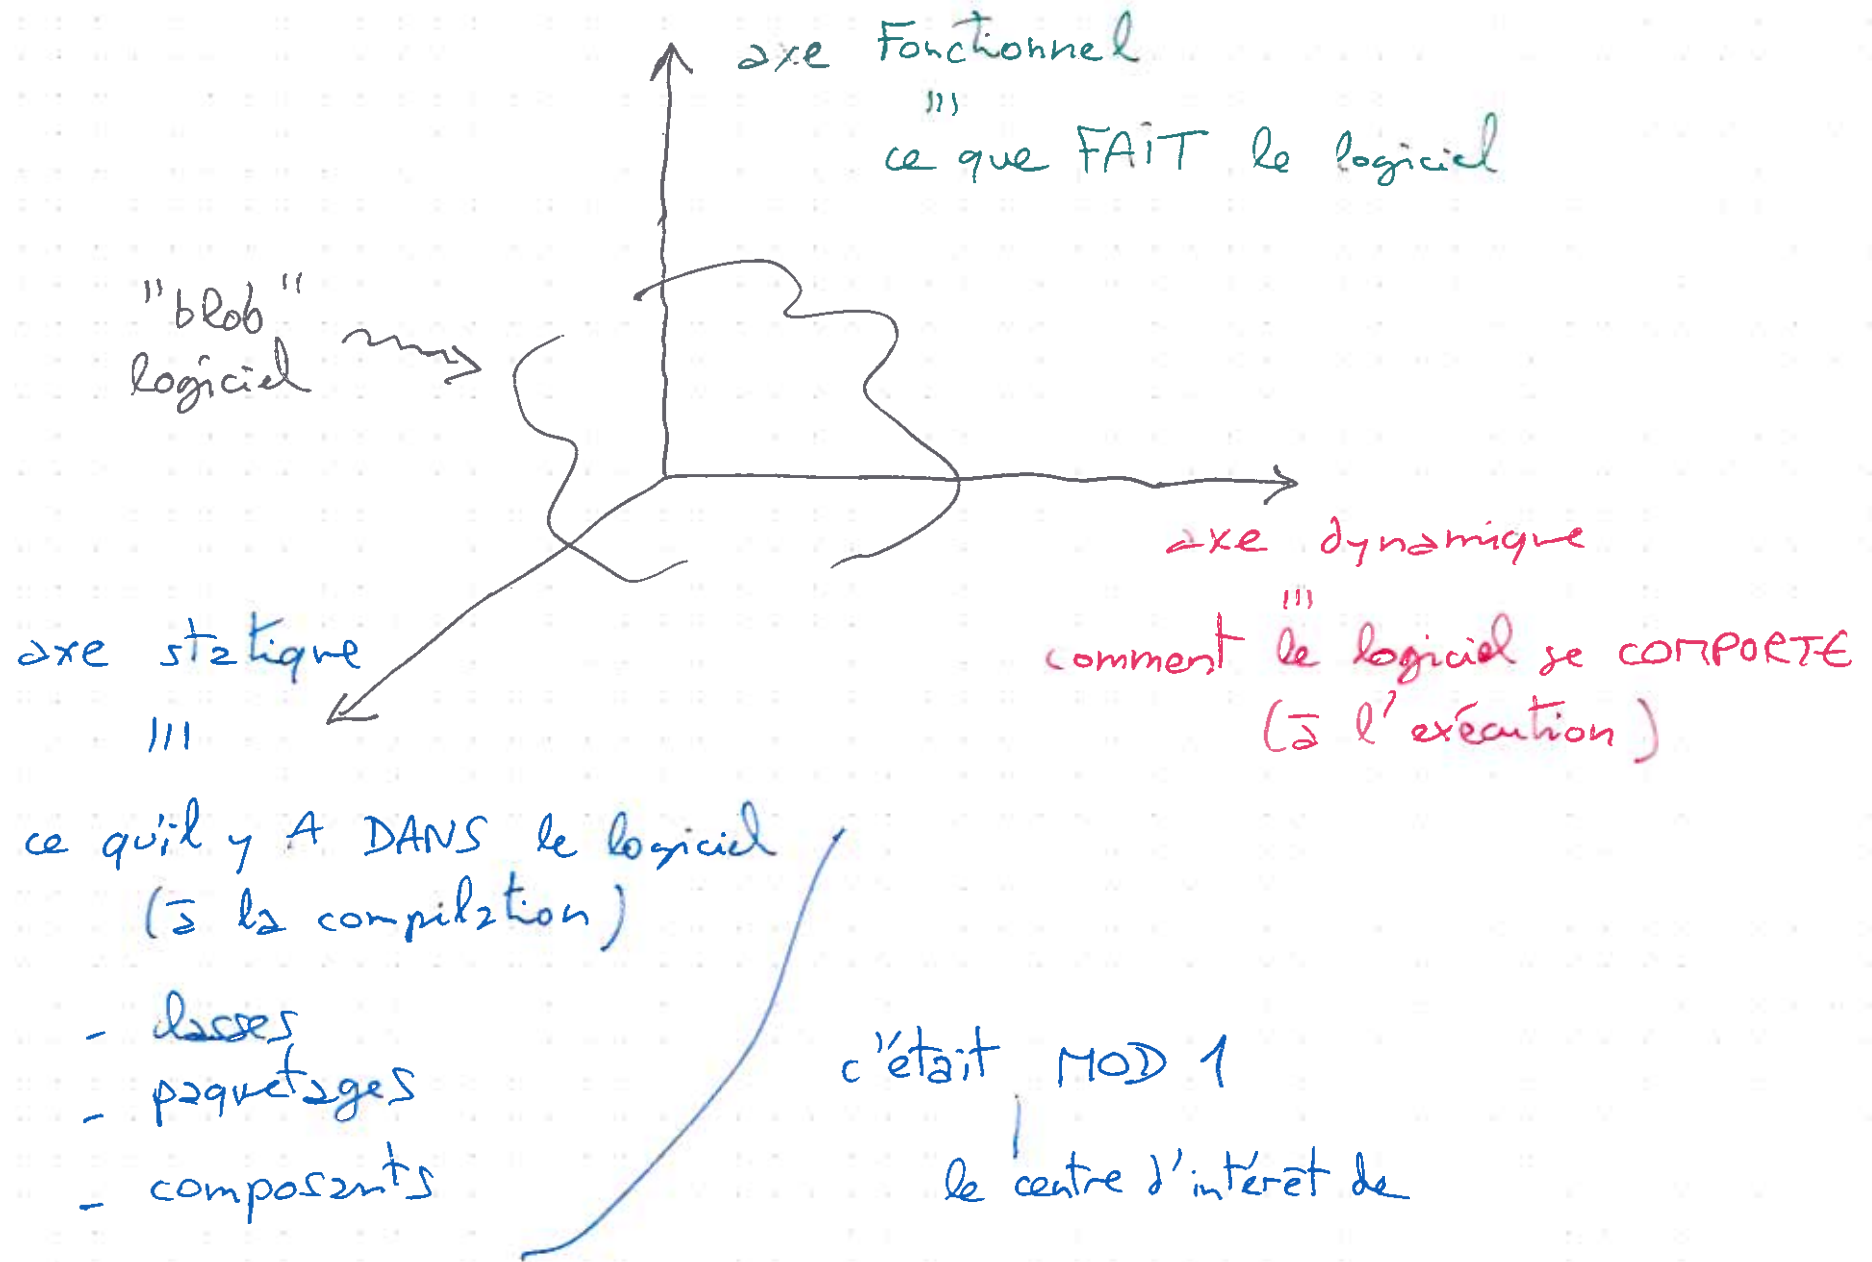 axe Fonctionnel
ce que FAIT le logiciel
"blob"
logiciel
axe dynamique
comment le logiciel se COMPORTE
(à l'exécution)
axe statique
ce qu'il y A DANS le logiciel
(à la compilation)
- classes
- paquetages
- composants
c'était MOD 1
le centre d'intérêt de